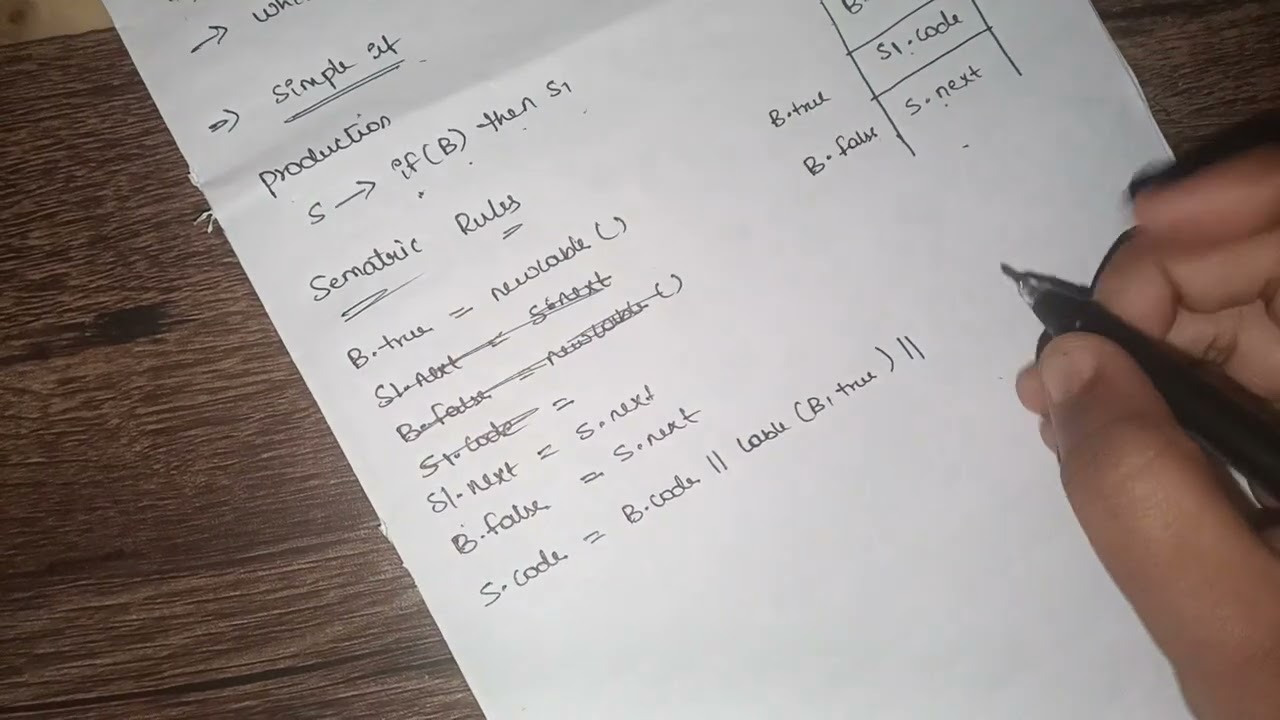 → whi
⇒ Simple if
production
S → if(B) then S1
Sematric Rules
B.true = newlable()
S1.next = S1.next
B.false = newlable()
S1.code =
S1.next = S.next
B.false = S.next
S.code = B.code || lable(B, true) ||
B.
S1.code
B.true S.next
B.false